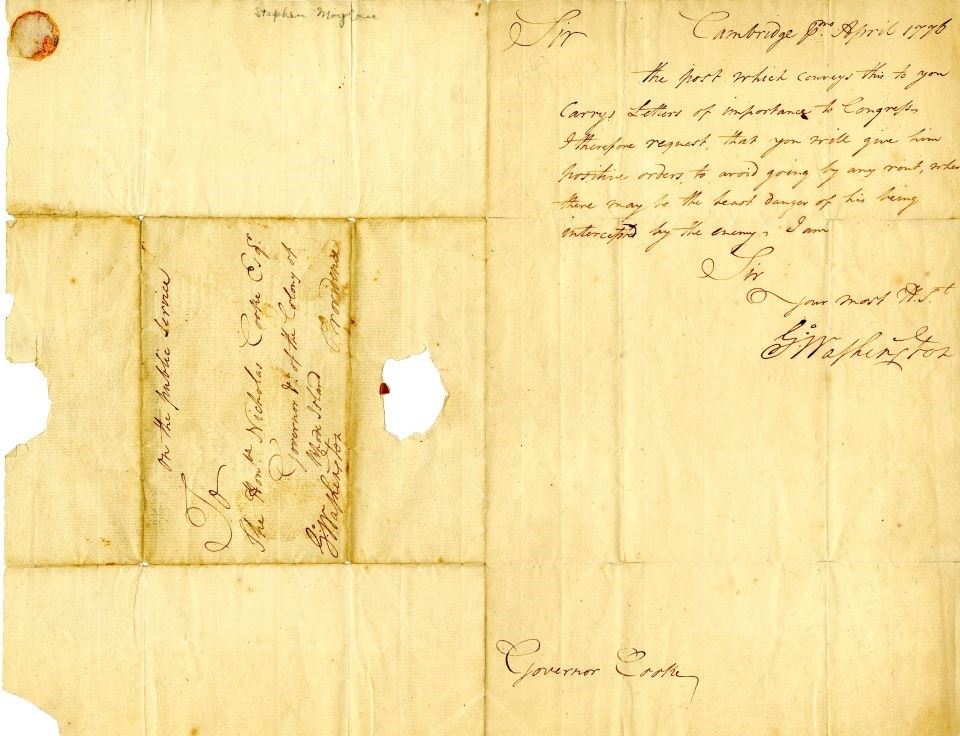 Stephen Moylan
Sir Cambridge pmo. April 1776
the post which conveys this to you
Carrys Letters of importance to Congress,
I therefore request, that you will give him
positive orders, to avoid going by any rout, wher
there may be the least danger of his being
intercepted by the enemy, I am
Sir
your most H. St
Go Washington
Governor Cooke
on the public service
To
The Honble Nicholas Cooke Esqr.
Governor &c. of the Colony of
Rhode Island Providence
Go Washington